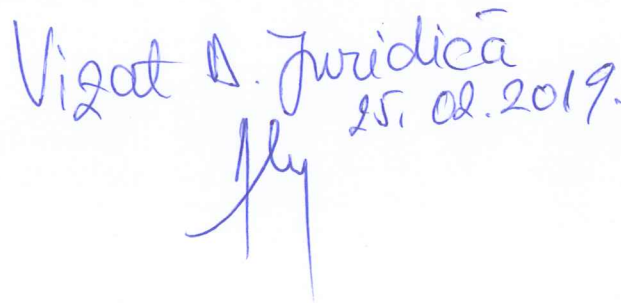 Vizat D. Juridică
25.02.2019.